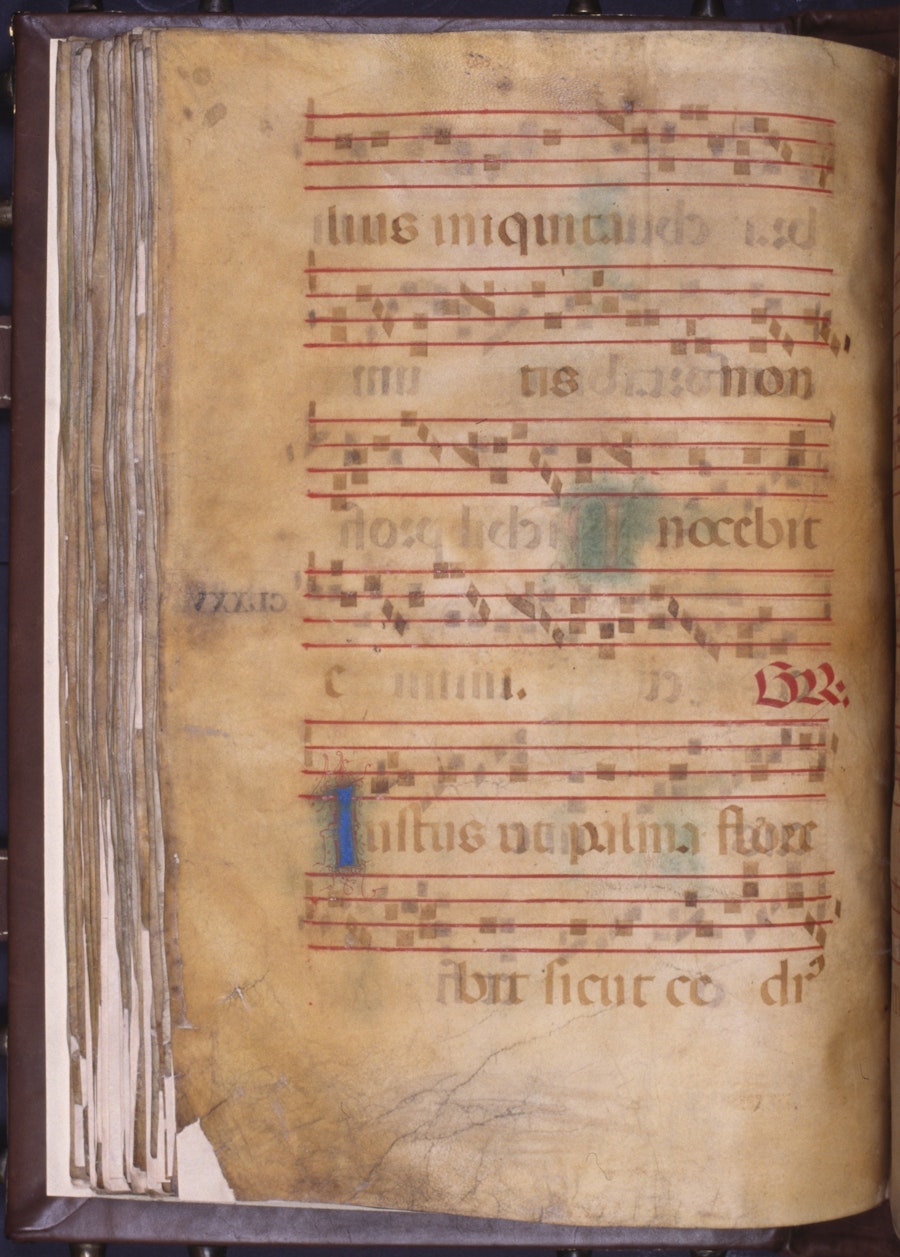 lius iniquita
tis non
nocebit
e i. GR:
Iustus ut palma flore
bit sicut ce drꝰ